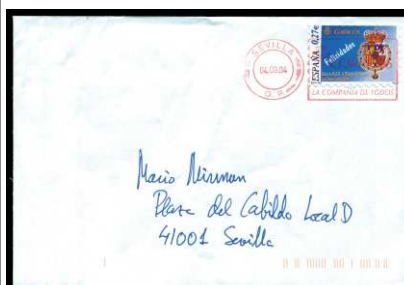 SEVILLA
04.09.04
O.P.
CORREOS
Felicidades
ESPAÑA 0,27€
LA COMPAÑIA DE TODOS
Mario Mirman
Plaza del Cabildo Local D
41001 Sevilla